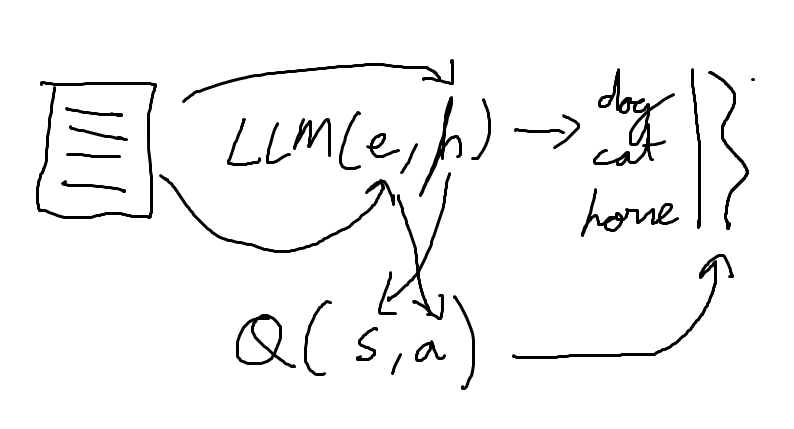 LLM(e, h)
dog
cat
horse
Q(s, a)